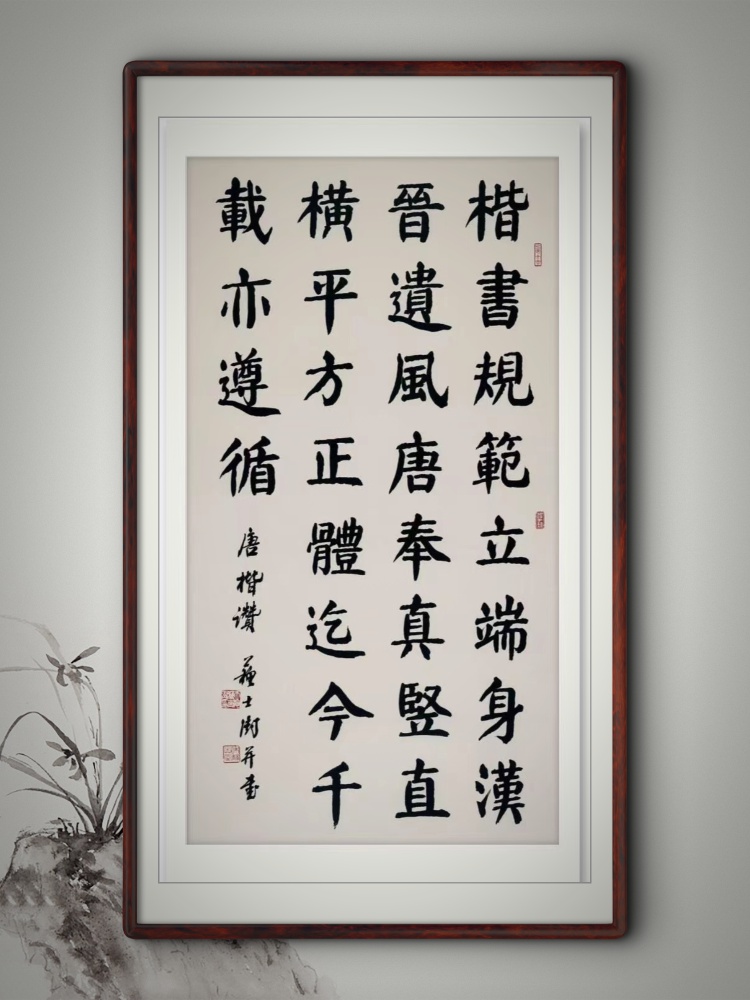 楷書規範立端身漢
晉遺風唐奉真竖直
橫平方正體迄今千
載亦遵循
唐楷讚
蘇士澍并書